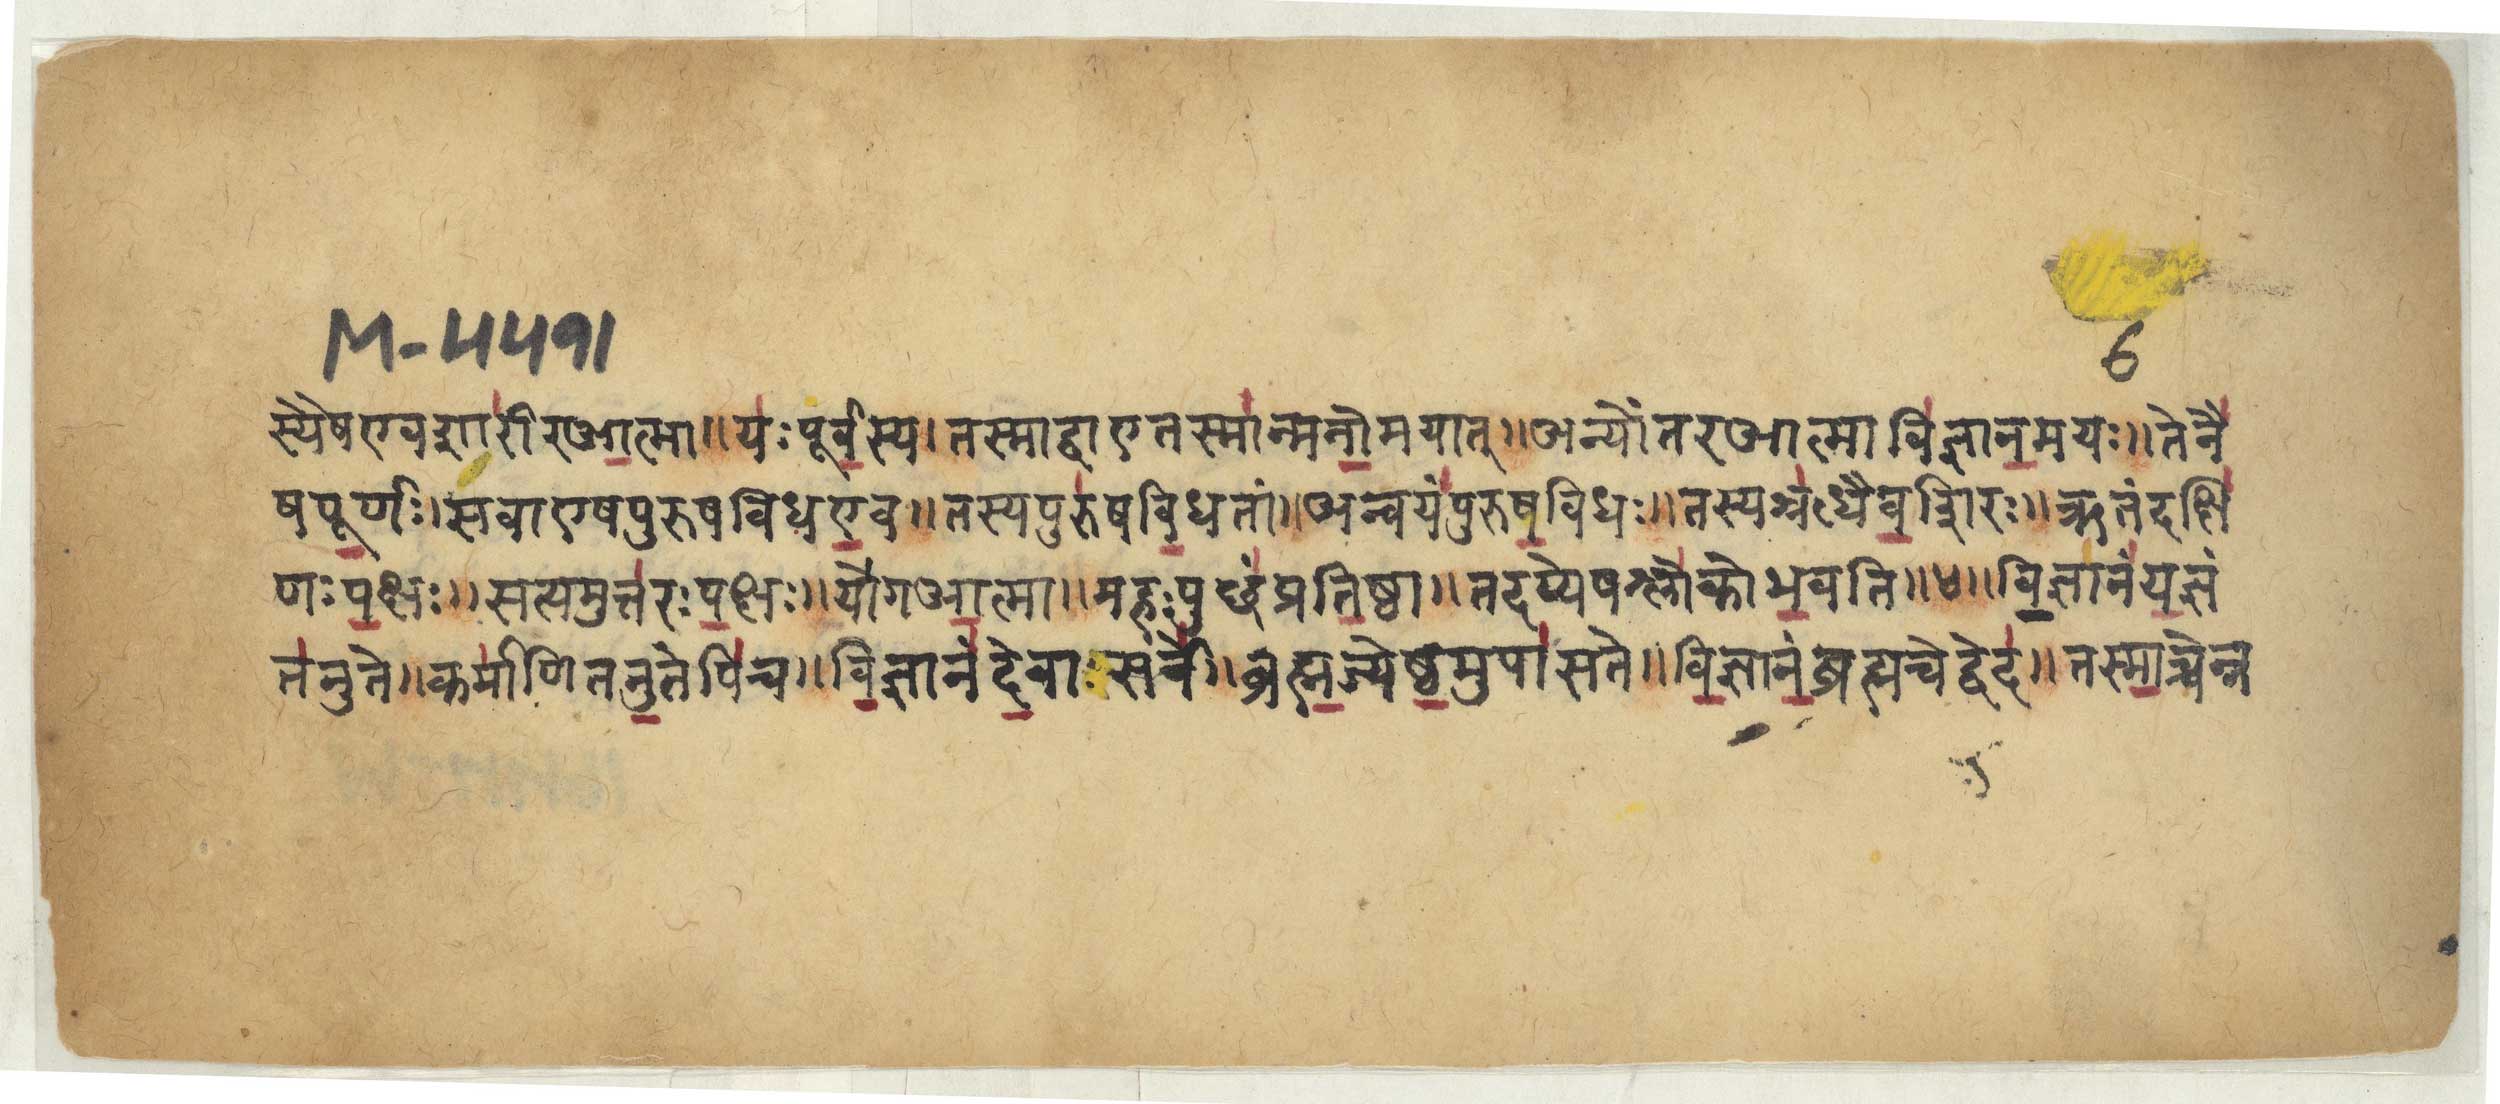 M-५५९१
6
स्यैषएवशारीरआत्मा॥यःपूर्वस्य।तस्माद्वाएतस्मान्मनोमयात्॥अन्योंतरआत्माविज्ञानमयः॥तेनै
षपूर्णः।सवाएषपुरुषविधएव॥तस्यपुरुषविधतां॥अन्वयंपुरुषविधः॥तस्यश्रद्धैवशिरः॥ऋतंदक्षि
णःपक्षः॥सत्यमुत्तरःपक्षः॥योगआत्मा॥महःपुछंप्रतिष्ठा॥तदप्येषश्लोकोभवति॥४॥विज्ञानंयज्ञं
तनुते॥कर्माणितनुतेपिच॥विज्ञानंदेवाःसर्वे॥ब्रह्मज्येष्ठमुपासते॥विज्ञानंब्रह्मचेद्वेद॥तस्माच्चेन्न